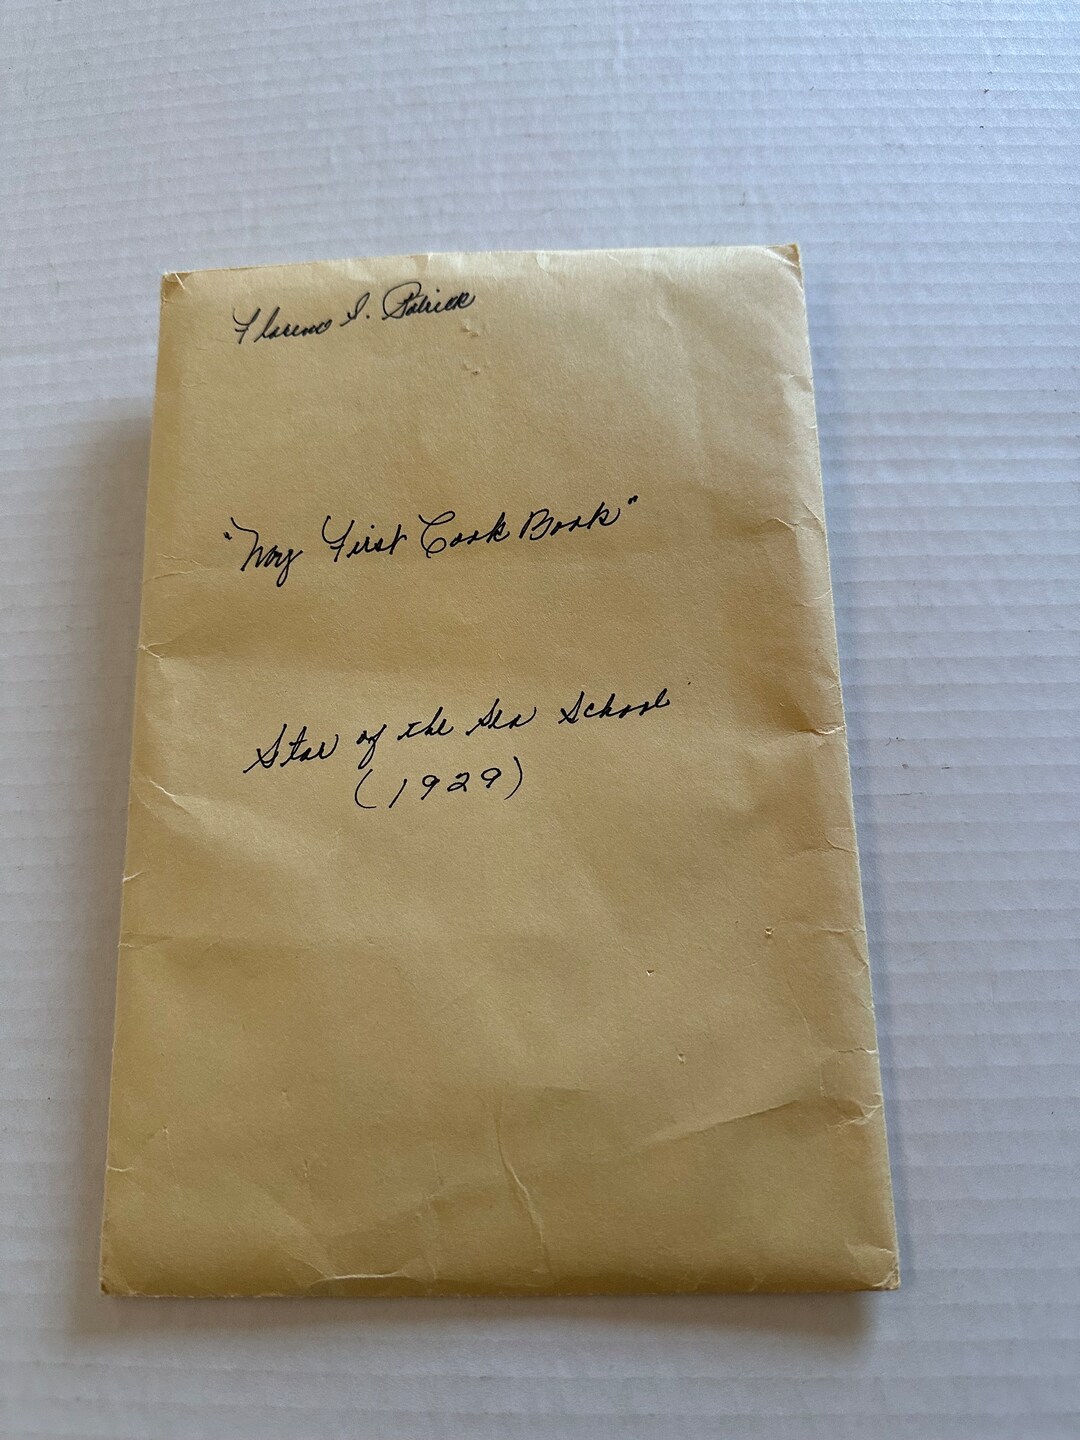 Florence I. Patrick
"My First Cook Book"
Star of the Sea School
(1929)